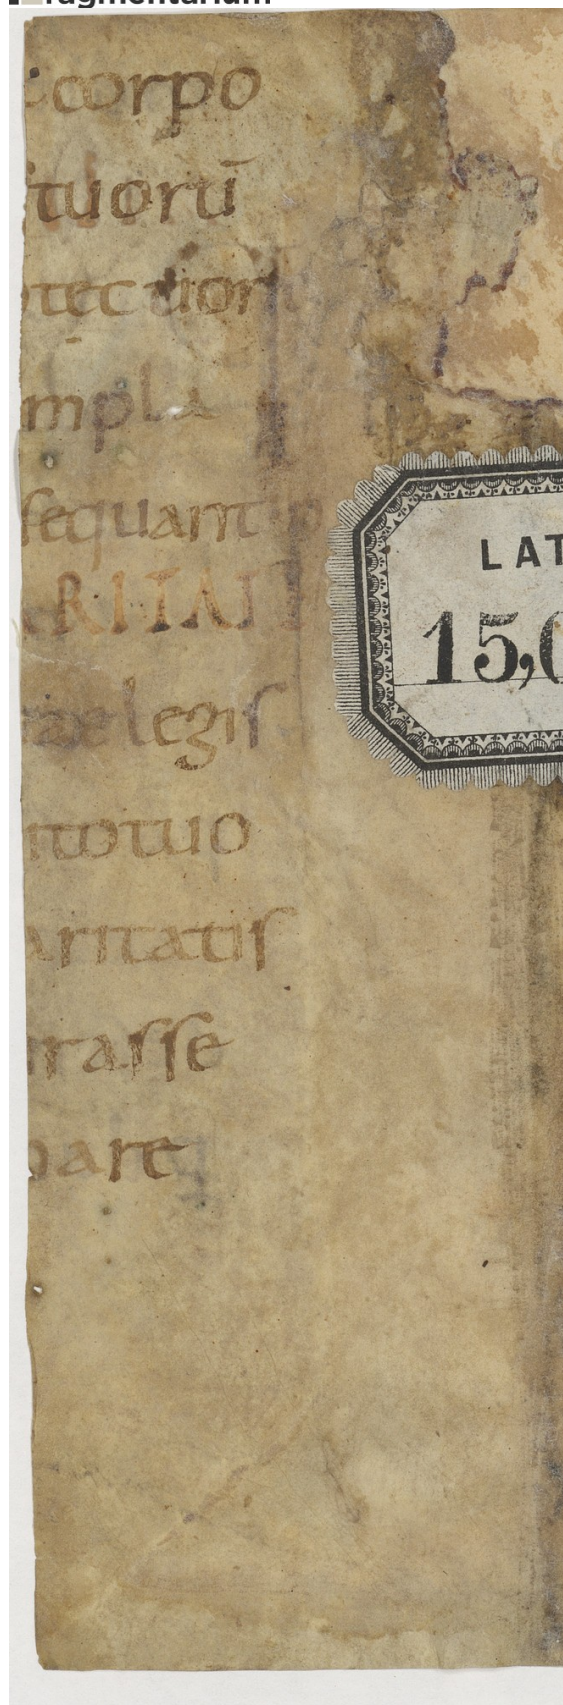 corpo
tuorū
tectior
mpla
sequant
ARITAT
legis
totuo
aritatis
rasse
are
LAT
15,0